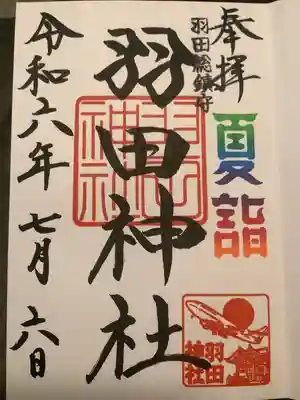 奉拝
夏詣
羽田総鎮守
羽田神社
令和六年 七月 六日
羽田
神社